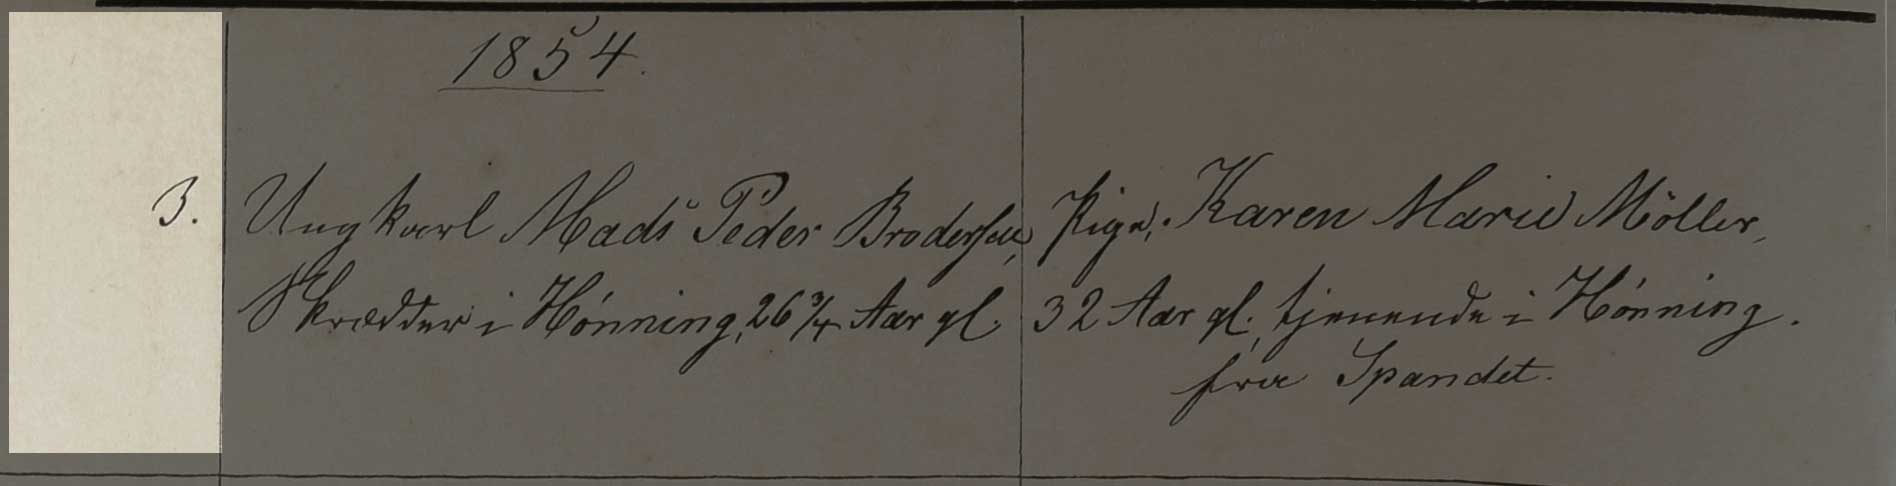 1854.
3.
Ungkarl Mads Peder Brodersen,
Skrædder i Hönning, 26 3/4 Aar gl.
Pige, Karen Marie Möller,
32 Aar gl., tjenende i Hönning.
fra Spandet.